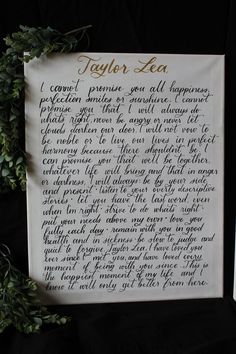 Taylor Lea,
I cannot promise you all happiness,
perfection smiles or sunshine. I cannot
promise you that I will always do
what's right, never be angry or never let
clouds darken our door. I will not vow to
be noble or to live our lives in perfect
harmony because there shouldn't be. I
can promise you that we'll be together,
whatever life will bring and that in anger
or darkness, I will always be by your side
and present · listen to your overly descriptive
stories · let you have the last word, even
when I'm right · strive to do what's right ·
put your needs above my own · love you
fully each day · remain with you in good
health and in sickness · be slow to judge and
quick to forgive. Taylor Lea, I have loved you
ever since I met you, and have loved every
moment of being with you since. This is
the happiest moment of my life and I
know it will only get better from here.